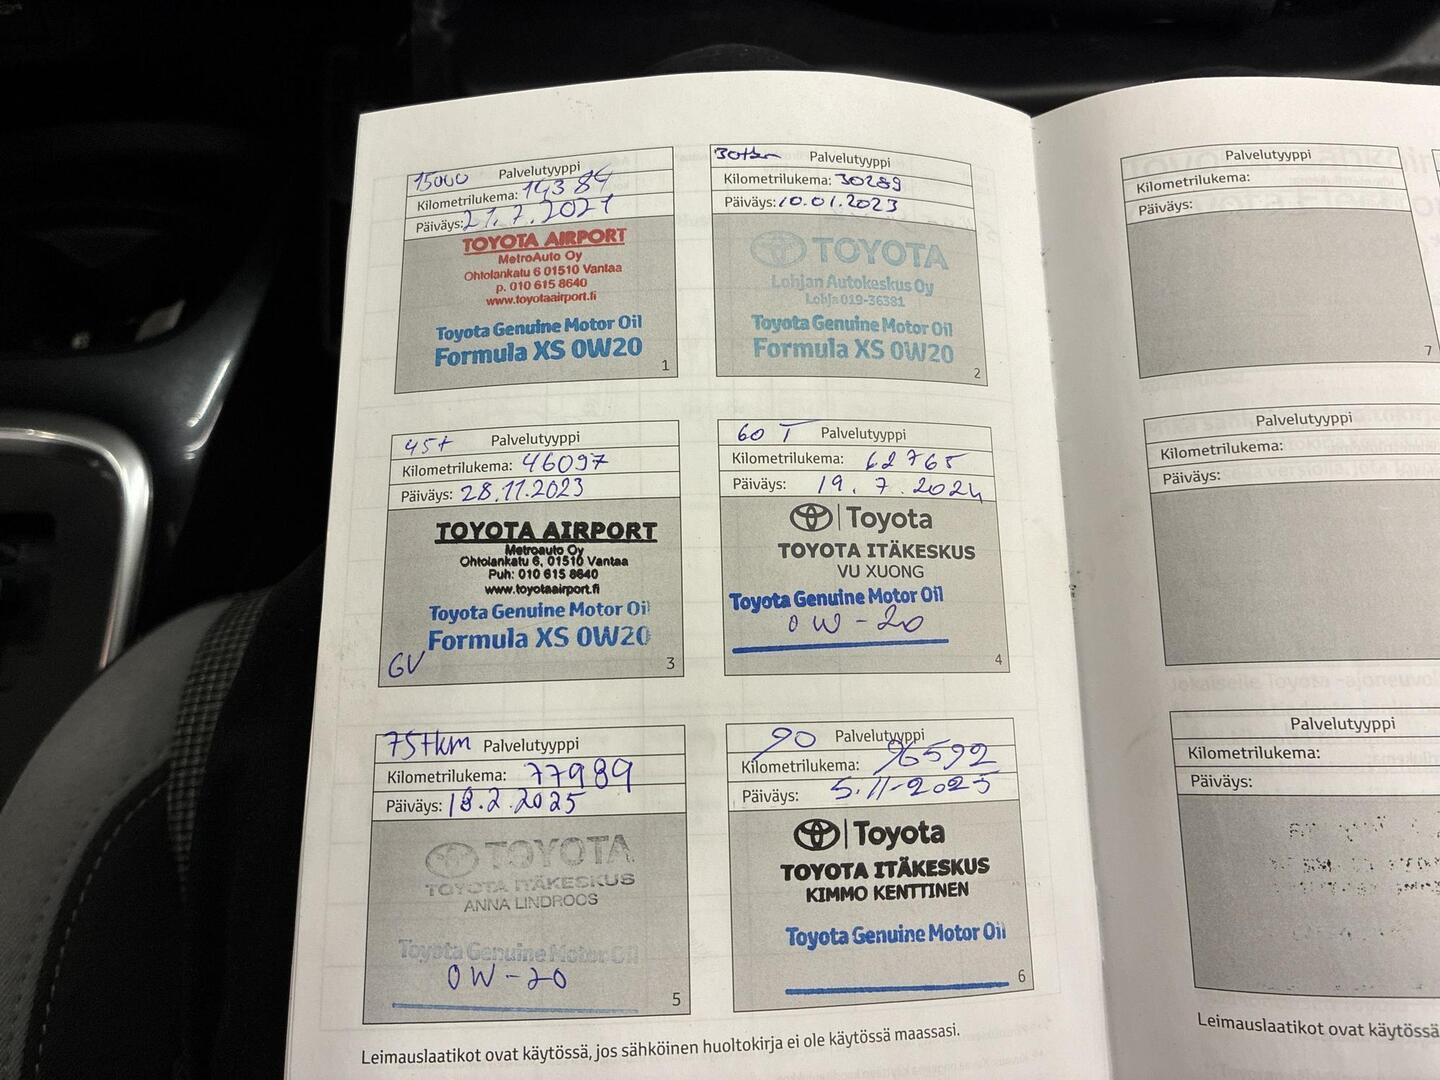 15000 Palvelutyyppi
Kilometrilukema: 14384
Päiväys: 21.7.2021
TOYOTA AIRPORT
MetroAuto Oy
Ohtolankatu 6 01510 Vantaa
p. 010 615 8640
www.toyotaairport.fi
Toyota Genuine Motor Oil
Formula XS 0W20
1
30tkm Palvelutyyppi
Kilometrilukema: 30289
Päiväys: 10.01.2023
TOYOTA
Lohjan Autokeskus Oy
Lohja 019-36381
Toyota Genuine Motor Oil
Formula XS 0W20
2
45t Palvelutyyppi
Kilometrilukema: 46097
Päiväys: 28.11.2023
TOYOTA AIRPORT
Metroauto Oy
Ohtolankatu 6, 01510 Vantaa
Puh: 010 615 8640
www.toyotaairport.fi
Toyota Genuine Motor Oil
Formula XS 0W20
GV
3
60 T Palvelutyyppi
Kilometrilukema: 62765
Päiväys: 19.7.2024
Toyota
TOYOTA ITÄKESKUS
VU XUONG
Toyota Genuine Motor Oil
0W-20
4
75tkm Palvelutyyppi
Kilometrilukema: 77989
Päiväys: 18.2.2025
TOYOTA
TOYOTA ITÄKESKUS
ANNA LINDROOS
Toyota Genuine Motor Oil
0W-20
5
90 Palvelutyyppi
Kilometrilukema: 96592
Päiväys: 5.11-2025
Toyota
TOYOTA ITÄKESKUS
KIMMO KENTTINEN
Toyota Genuine Motor Oil
6
Leimauslaatikot ovat käytössä, jos sähköinen huoltokirja ei ole käytössä maassasi.
Palvelutyyppi
Kilometrilukema:
Päiväys:
7
Palvelutyyppi
Kilometrilukema:
Päiväys:
Palvelutyyppi
Kilometrilukema:
Päiväys:
Leimauslaatikot ovat käytössä